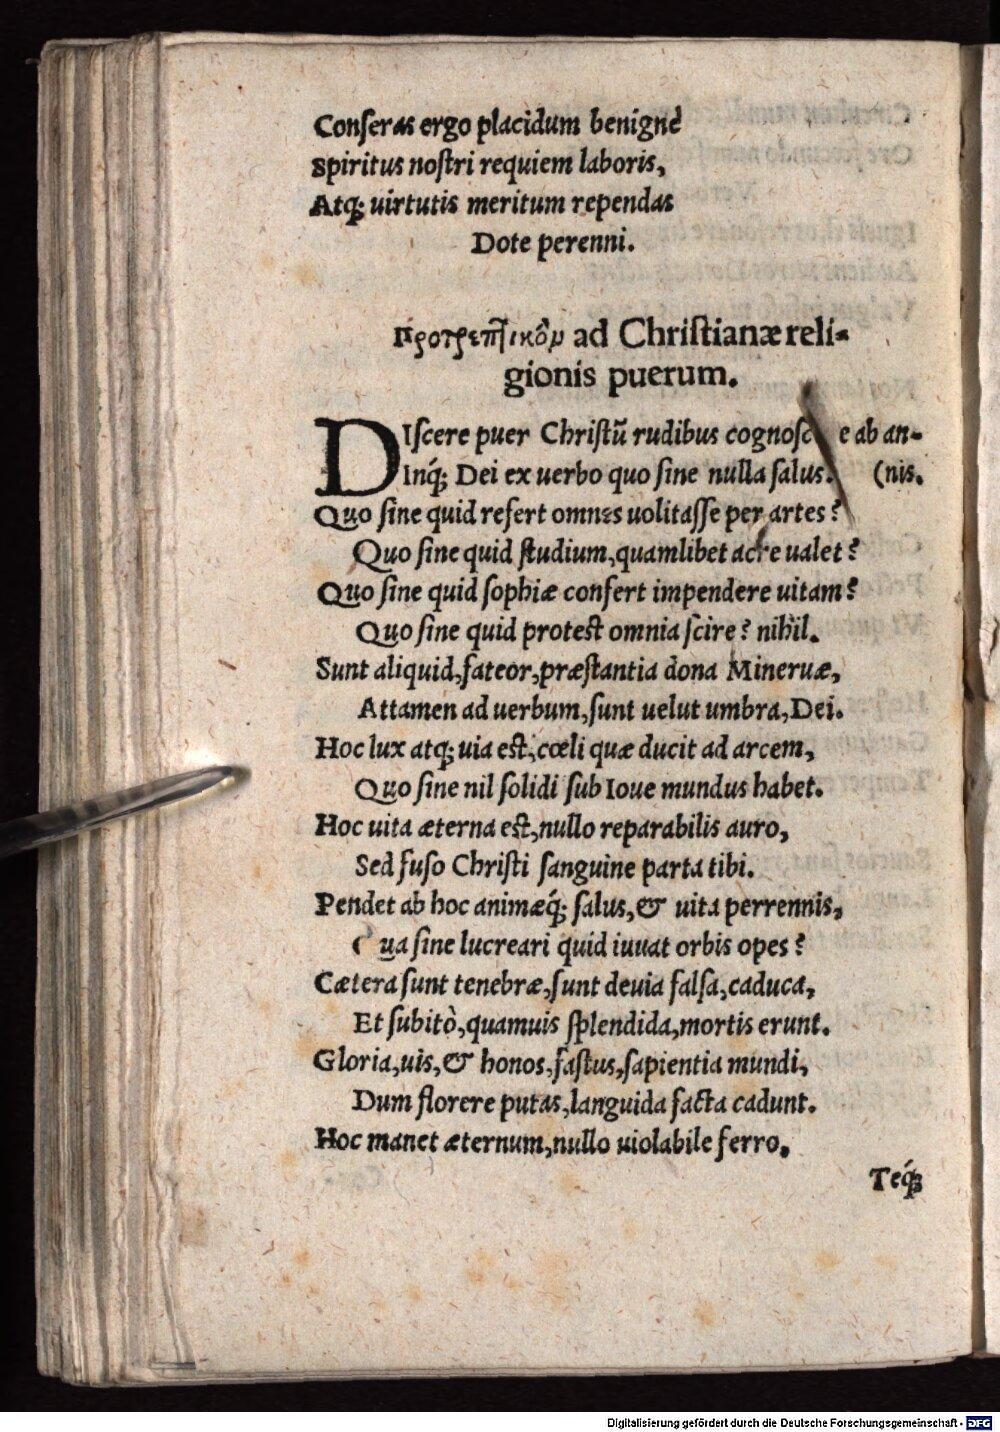 Conſeras ergo placidum benignè
Spiritus noſtri requiem laboris,
Atq; uirtutis meritum rependas
Dote perenni.
Προτρεπτικὸν ad Chriſtianæ reli-
gionis puerum.
DIſcere puer Chriſtũ rudibus ab an-
Inq́; Dei ex uerbo quo ſine nulla ſalus. (nis.
Quo ſine quid refert omnes uolitaſſe per artes?
Quo ſine quid ſtudium, quamlibet acre ualet?
Quo ſine quid ſophiæ confert impendere uitam?
Quo ſine quid proteſt omnia ſcire? nihil.
Sunt aliquid, fateor, præſtantia dona Mineruæ,
Attamen ad uerbum, ſunt uelut umbra, Dei.
Hoc lux atq; uia eſt, cœli quæ ducit ad arcem,
Quo ſine nil ſolidi ſub Ioue mundus habet.
Hoc uita æterna eſt, nullo reparabilis auro,
Sed fuſo Chriſti ſanguine parta tibi.
Pendet ab hoc animæq́; ſalus, & uita perrennis,
Qua ſine lucreari quid iuuat orbis opes?
Cætera ſunt tenebræ, ſunt deuia falſa, caduca,
Et ſubitò, quamuis ſplendida, mortis erunt.
Gloria, uis, & honos, faſtus, ſapientia mundi,
Dum florere putas, languida facta cadunt.
Hoc manet æternum, nullo uiolabile ferro,
Teq́;
Digitalisierung gefördert durch die Deutsche Forschungsgemeinschaft - DFG